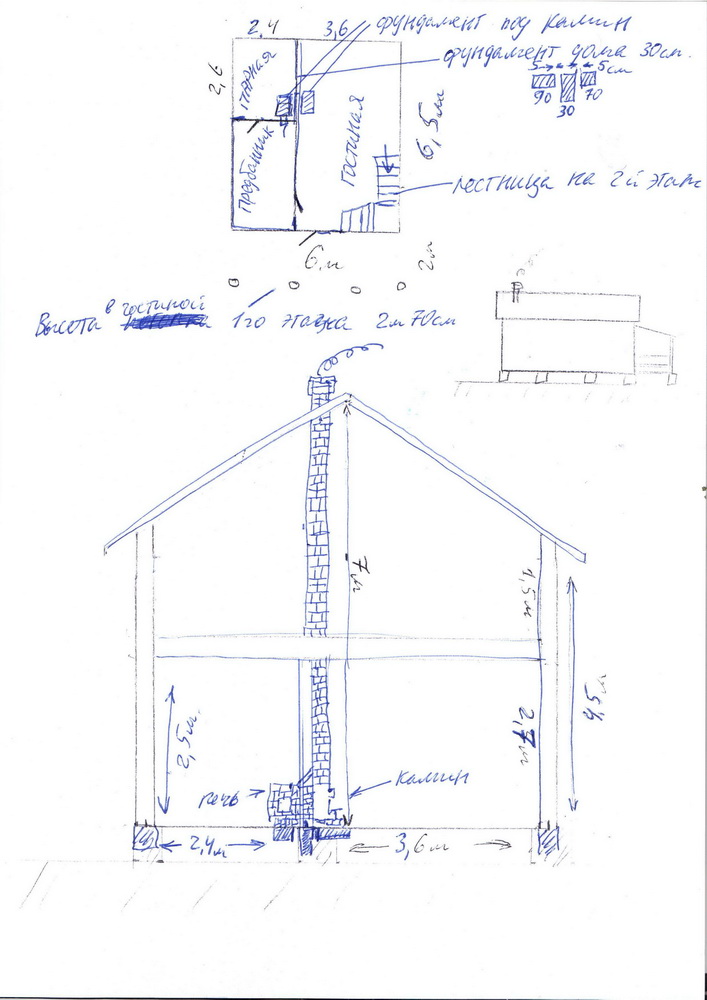 2,4 3,6 фундамент под камин
фундамент дома 30см.
5 5см
90 30 70
2,6
парная
предбанник
гостиная
6,5м
лестница на 2й этаж
6м
2м
Высота в гостиной 1го этажа 2м 70см
7м
1,5м
2,7м
4,5м
2,5м.
печь
камин
2,4м
3,6м